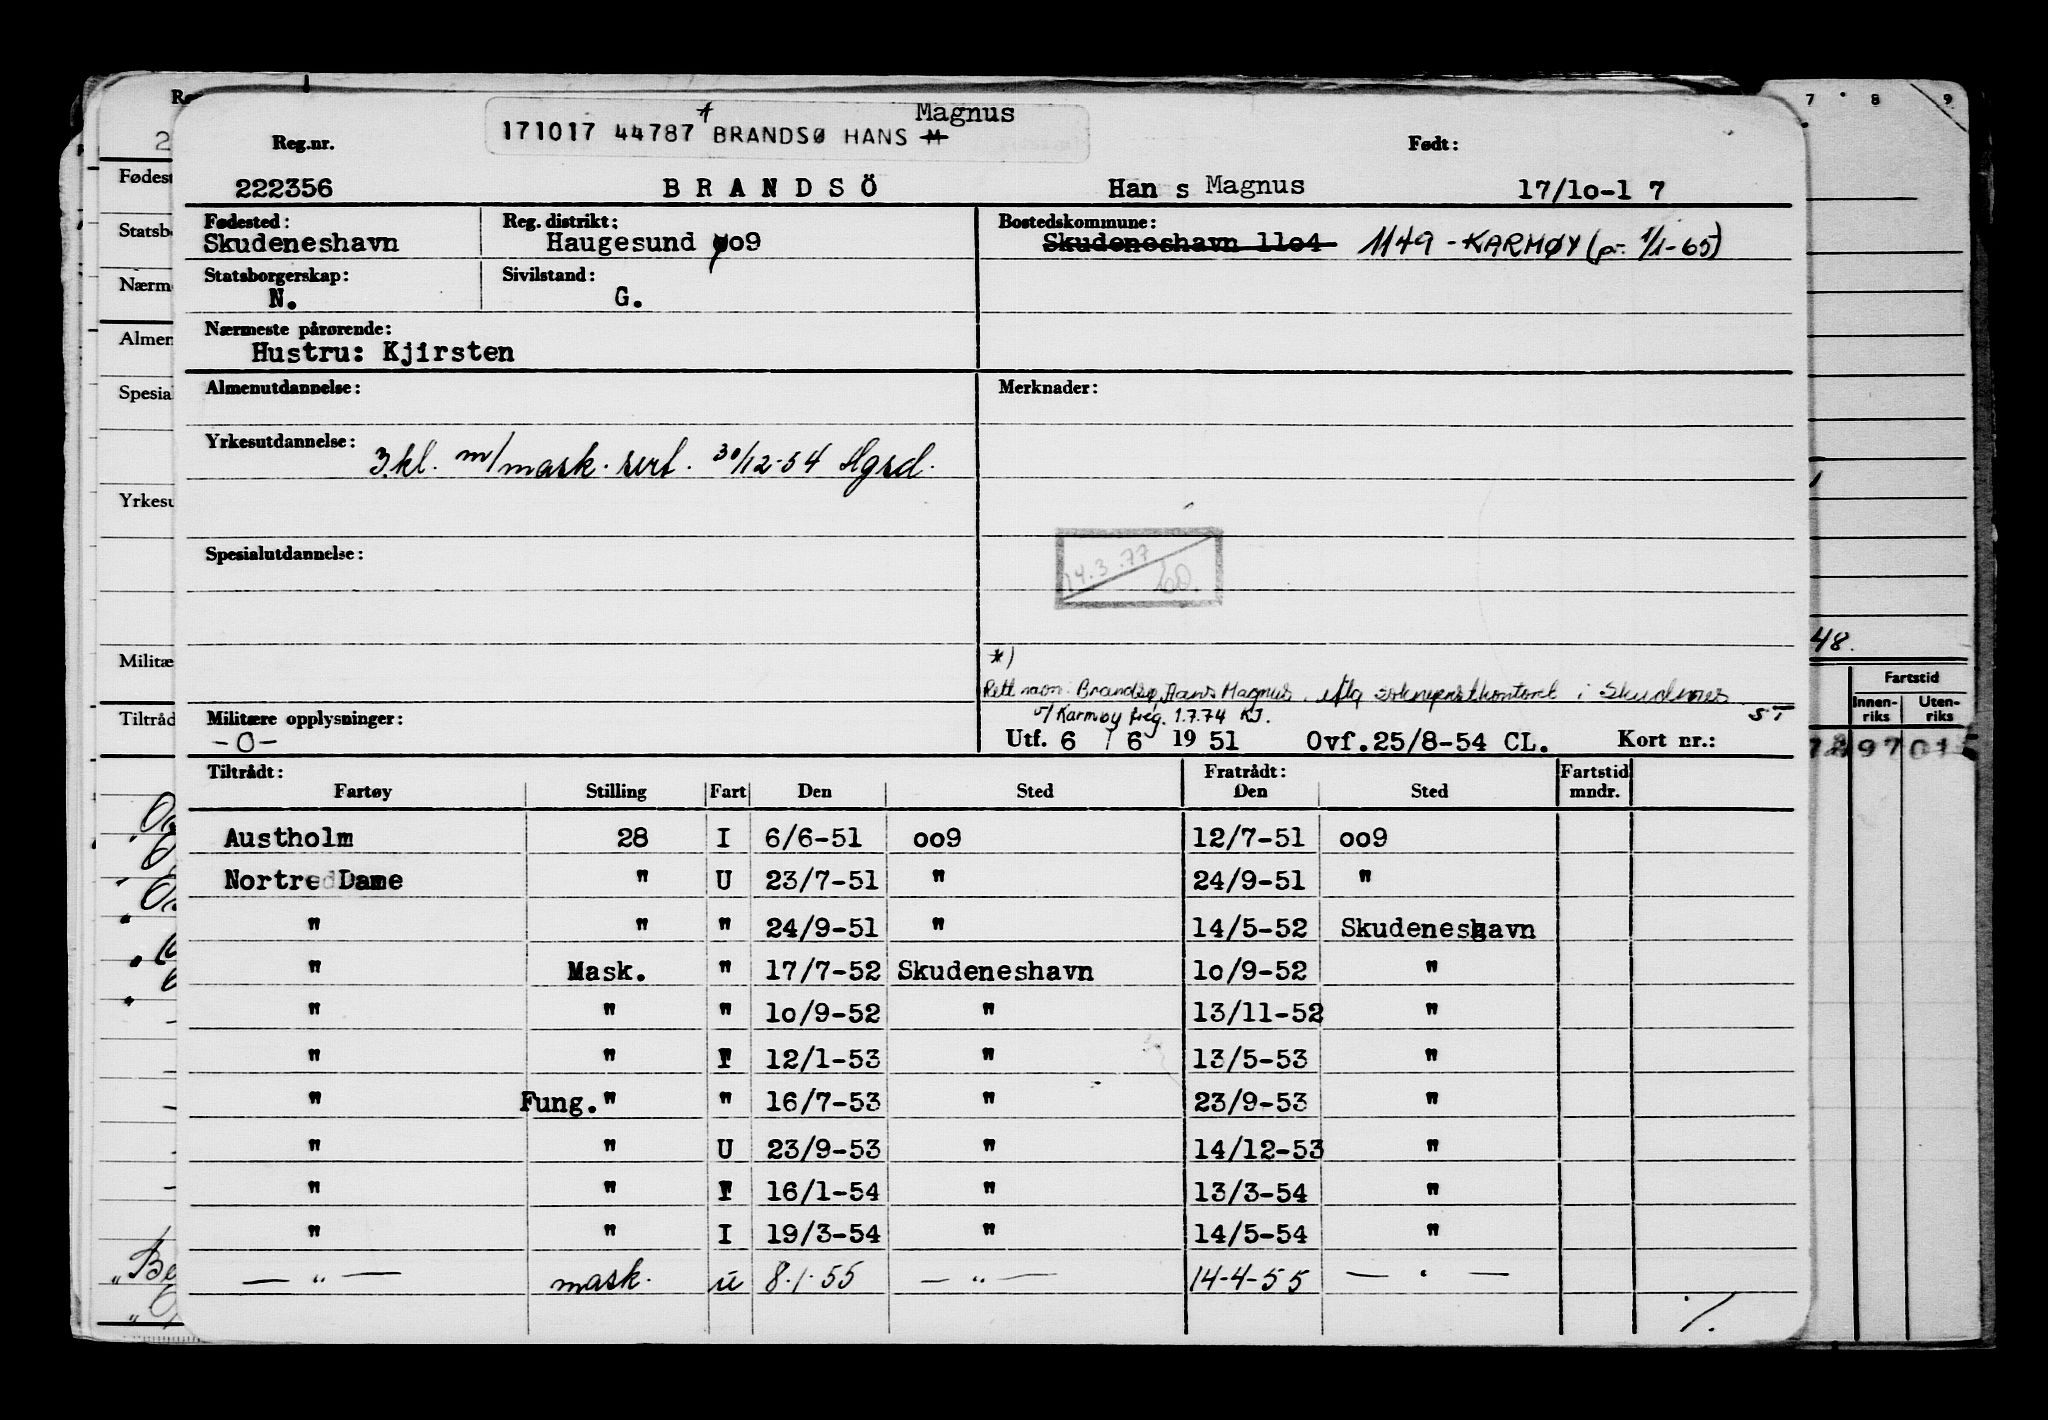 Magnus
171017 44787 * BRANDSØ HANS M
Reg.nr. Født:
222356 BRANDSÖ Hans Magnus 17/10-17
Fødested: Reg. distrikt: Bostedskommune:
Skudeneshavn Haugesund oo9 Skudeneshavn 11o4 1149 - KARMØY (pr. 1/1-65)
Statsborgerskap: Sivilstand:
N. G.
Nærmeste pårørende:
Hustru: Kjirsten
Almenutdannelse: Merknader:
Yrkesutdannelse:
3.kl. m/mask. sert. 30/12-54 Hgsd.
14.3.77
Spesialutdannelse:
*)
Rett navn: Brandsø, Hans Magnus. iflg i Skudenes
v/ Karmøy freg. 1.7.74 KJ. ST
Militære opplysninger:
-O- Utf. 6 / 6 1951 Ovf.25/8-54 CL. Kort nr.:
Tiltrådt: Fratrådt: Fartstid
Fartøy Stilling Fart Den Sted Den Sted mndr.
Austholm 28 I 6/6-51 oo9 12/7-51 oo9
Nortre Dame " U 23/7-51 " 24/9-51 "
" " " 24/9-51 " 14/5-52 Skudeneshavn
" Mask. " 17/7-52 Skudeneshavn 1o/9-52 "
" " " 1o/9-52 " 13/11-52 "
" " I 12/1-53 " 13/5-53 "
" Fung." " 16/7-53 " 23/9-53 "
" " U 23/9-53 " 14/12-53 "
" " I 16/1-54 " 13/3-54 "
" " I 19/3-54 " 14/5-54 "
— " — mask. u 8.1.55 — " — 14-4-55 — " —
./.
2
Fødest
Statsb
Nærm
Almen
Spesial
Yrkesu
Militæ
Tiltråd
7 8 9
48.
Fartstid
Innen-riks Uten-riks